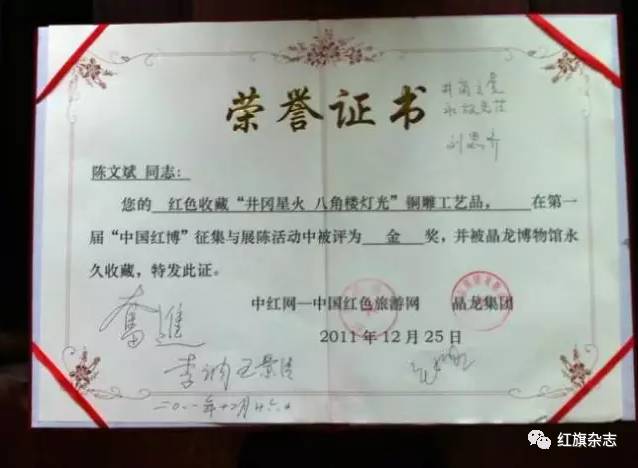 荣誉证书
井冈之星
永放光芒
刘思齐
陈文斌 同志:
您的 红色收藏“井冈星火 八角楼灯光”铜雕工艺品， 在第一
届“中国红博”征集与展陈活动中被评为 金 奖，并被晶龙博物馆永
久收藏，特发此证。
中红网—中国红色旅游网 晶龙集团
2011年12月25日
奋進
李讷 王景清
二〇一一年十二月廿六日
红旗杂志